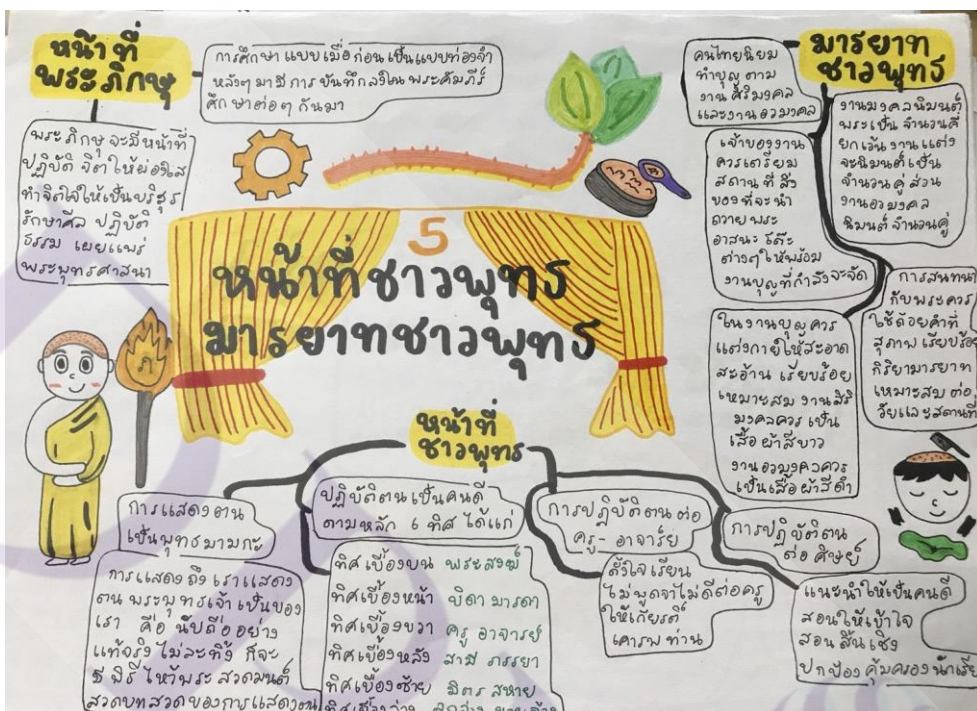 หน้าที่
พระภิกษุ
การศึกษา แบบเมื่อก่อนเป็นแบบท่องจำ
หลังๆ มามี การ บันทึกลงใน พระคัมภีร์
ศึกษาต่อๆ กันมา
พระภิกษุ จะมีหน้าที่
ปฏิบัติ จิต ให้ผ่องใส
ทำจิตใจให้เป็นบริสุธ
รักษาศีล ปฏิบัติ
ธรรม เผยแพร่
พระพุทธศาสนา
5
หน้าที่ชาวพุทธ
มารยาทชาวพุทธ
มารยาท
ชาวพุทธ
คนไทยนิยม
ทำบุญ ตาม
งาน ศิริมงคล
และงาน อวมงคล
งานมงคลนิมนต์
พระเป็น จำนวนคี่
ยกเว้น งานแต่ง
จะนิมนต์เป็น
จำนวน คู่ ส่วน
งานอวมงคล
นิมนต์ จำนวนคู่
เจ้าของงาน
ควรเตรียม
สถานที่ สิ่ง
ของที่จะนำ
ถวาย พระ
อาสนะ โต๊ะ
ต่างๆ ให้พร้อม
งานบุญที่กำลังจะจัด
การสนทนา
กับพระควร
ใช้ถ้อยคำที่
สุภาพ เรียบร้อย
กิริยามารยาท
เหมาะสม ต่อ
วัยและสถานที่
ในงานบุญควร
แต่งกายให้สะอาด
สะอ้าน เรียบร้อย
เหมาะสม งานสิริ
มงคลควร เป็น
เสื้อ ผ้าสีขาว
งานอวมงคลควร
เป็นเสื้อ ผ้าสีดำ
หน้าที่
ชาวพุทธ
การแสดงตน
เป็นพุทธมามกะ
การแสดง ถึง เราแสดง
ตน พระพุทธเจ้า เป็นของ
เรา คือ นับถือ อย่าง
แท้จริง ไม่ละทิ้ง ก็จะ
มี พิธี ไหว้พระ สวดมนต์
สวดบทสวด ของการแสดงตน
ปฏิบัติตน เป็นคนดี
ตามหลัก 6 ทิศ ได้แก่
ทิศเบื้องบน พระสงฆ์
ทิศเบื้องหน้า บิดา มารดา
ทิศเบื้องขวา ครู อาจารย์
ทิศเบื้องหลัง สามี ภรรยา
ทิศเบื้องซ้าย มิตร สหาย
การปฏิบัติตน ต่อ
ครู - อาจารย์
ตั้งใจ เรียน
ไม่ พูดจาไม่ดีต่อครู
ให้เกียรติ
เคารพ ท่าน
การปฏิบัติตน
ต่อ ศิษย์
แนะนำ ให้เป็นคนดี
สอนให้เข้าใจ
สอน สิ้นเชิง
ปกป้อง คุ้มครอง